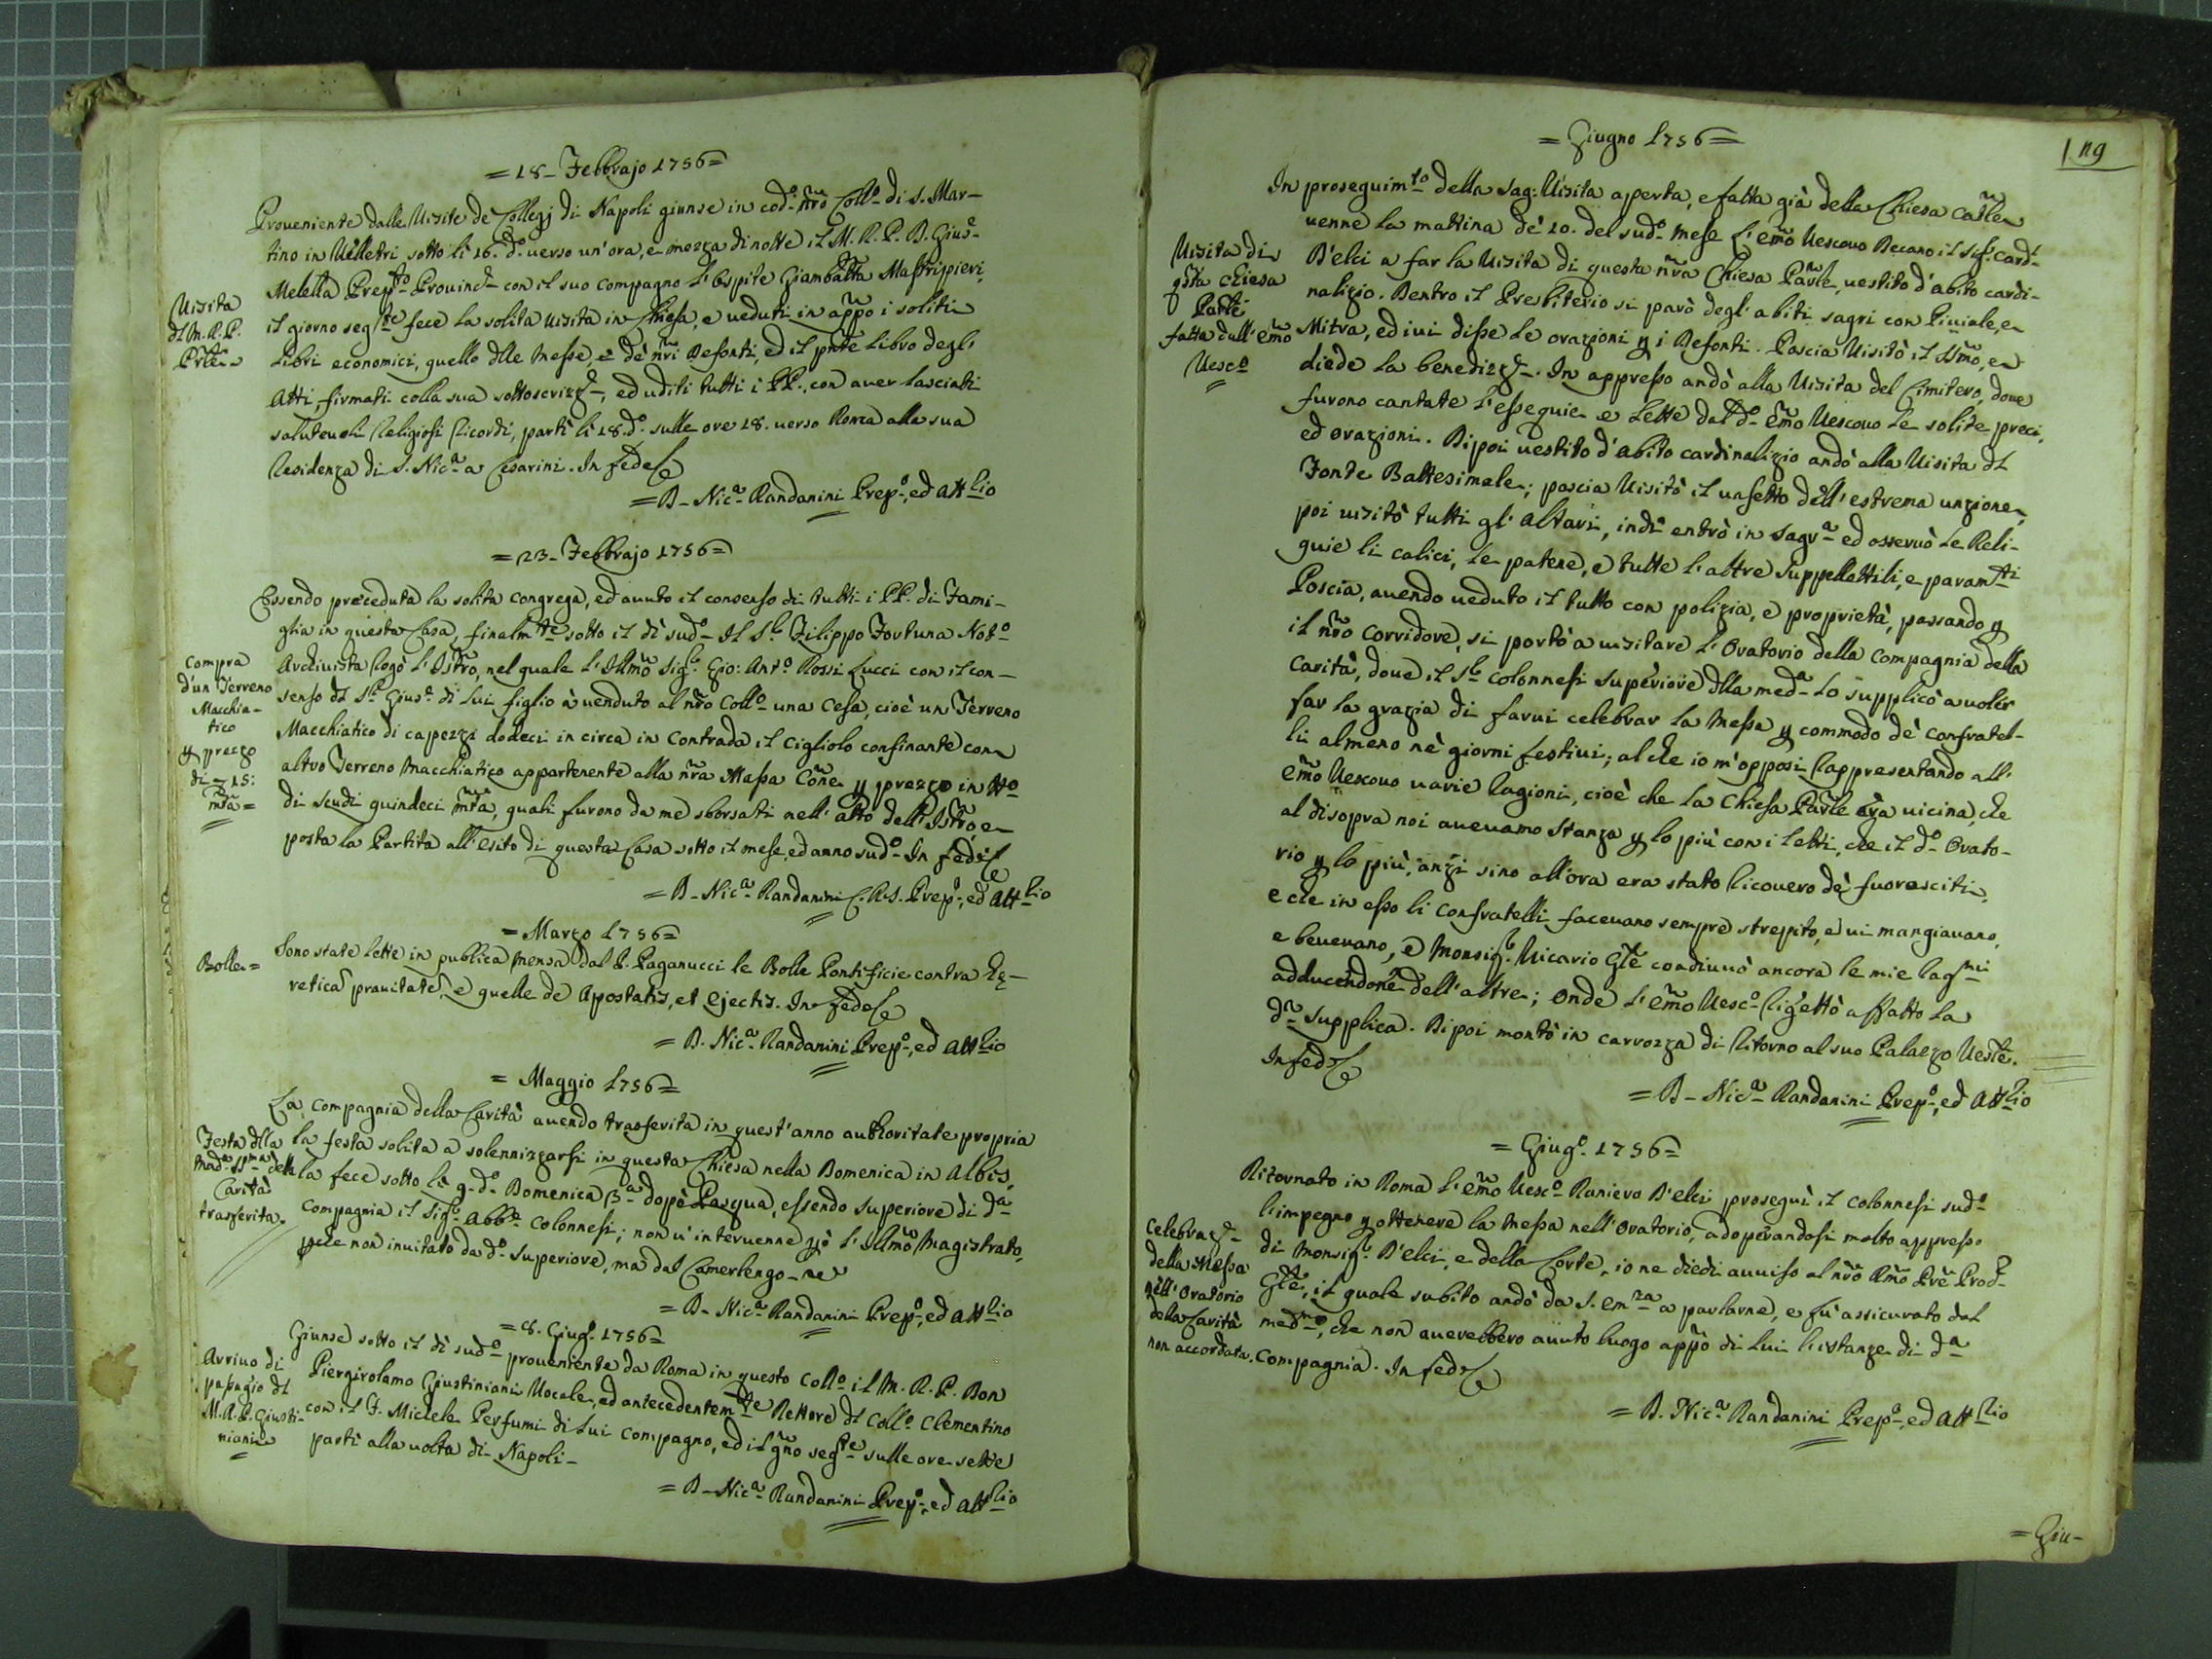 = 18 - Febbrajo 1756 =
Proveniente dalle Visite de' Collegj di Napoli giunse in cod.o nr̃o Coll.o di S. Mar-
tino in Velletri sotto li 16. d.o verso un'ora, e mezza di notte il M. R. P. D. Gius.e
Meletta Prep.to Provinc.e con il suo compagno l'Ospite Giambatt̃a Mastripieri,
Visita
dl M. R. P.
Prle
il giorno seg.te fece la solita visita in Chiesa, e veduti in app̃o i soliti
Libri economici, quello dlle Messe, e de' nr̃i Defonti, ed il pñte Libro degl'
Atti, firmati colla sua sottoscrizz.e, ed uditi tutti i PP. con aver lasciati
salutevoli Religiosi Ricordi, partì li 18. d.o sulle ore 18. verso Roma alla sua
Residenza di S. Nic.a a Cesarini. In fede
= D - Nic.a Randanini Prep.o, ed Att.rio
= 23 - Febbrajo 1756 =
Essendo preceduta la solita congrega, ed avuto il consenso di tutti i PP. di Fami-
glia in questa Casa, finalm.te sotto il dì sud.o Il S.r Filippo Fortuna Not.o
Compra
d'un Terreno
Macchia-
tico
p prezzo
di - 15:
mta =
Archivista rogò l'Istr̃o, nel quale l'Illm̃o Sig.r Gio: Ant.o Rossi Lucci con il con-
senso dl S.r Gius.e di lui figlio à venduto al nr̃o Coll.o una Cesa, cioè un Terreno
Macchiatico di capezzi dodeci in circa in Contrada il Cigliolo confinante con
altro Terreno Macchiatico appartenente alla nr̃a Massa Com̃e p prezzo in tto
di scudi quindeci mta, quali furono da me sborsati nell'atto dell'Istr̃o, e
posta la Partita all'esito di questa Casa sotto il mese, ed anno sud.o In fede
= D - Nic.a Randanini C. R. S. Prep.o, ed Att.rio
= Marzo 1756 =
Bolle =
Sono state lette in publica mensa dal P. Paganucci le Bolle Pontificie contra hę-
retica pravitate, e quelle de Apostatis, et ejectis. In fede
= D. Nic.a Randanini Prep.o, ed Att.rio
= Maggio 1756 =
La Compagnia della Carità avendo trasferita in quest'anno authoritate propria
Festa dlla
Mad.a SS.ma dell
Carità
trasferita.
la festa solita a solennizzarsi in questa Chiesa nella Domenica in Albis,
la fece sotto li 9. d.o Domenica 3.a dopò Pasqua, essendo Superiore di d.a
Compagnia il Sig.r Abb.e Colonnesi; non v'intervenne pò l'Illm̃o Magistrato,
pche non invitato da d.o Superiore, ma dal Camerlengo -
= D - Nic.a Randanini Prep.o, ed Att.rio
= 8. Giug.o 1756 =
Giunse sotto il dì sud.o proveniente da Roma in questo Coll.o il M. R. P. Don
Arrivo di
passagio dl
M. R. P. Giusti-
niani
Piergirolamo Giustiniani Vocale, ed antecedentem.te Rettore dl Coll.o Clementino
con il F. Michele Perfumi di lui compagno, ed il gño seg.te sulle ore sette
partì alla volta di Napoli -
= D - Nic.a Randanini Prep.o, ed Att.rio
= Giugno 1756 =
In proseguim.to della Sag: Visita aperta, e fatta già della Chiesa Catle
venne la mattina de' 10. del sud.o mese l'Em̃o Vescovo Decano il Sig.r Card.l
Visita di
qsta chiesa
Parle
fatta dall'Em̃o
Vesc.o
D'elci a far la Visita di questa nr̃a Chiesa Parle, vestito d'abito cardi-
nalizio. Dentro il Presbiterio si parò degl'abiti sagri con Piviale, e
Mitra, ed ivi disse le orazioni p i Defonti. Poscia Visitò il SSm̃o, e
diede la benedizz.e. In appresso andò alla Visita del Cimitero, dove
furono cantate l'essequie e lette dal d.o Em̃o Vescovo le solite preci,
ed orazioni. Dipoi vestito d'abito cardinalizio andò alla Visita dl
Fonte Battesimale; poscia Visitò il vasetto dell'estrema unzione,
poi visitò tutti gl'Altari, indi entrò in Sagr.a ed osservò le Reli-
quie li calici, le patene, e tutte l'altre suppellettili, e param.ti
Poscia, avendo veduto il tutto con polizia, e proprietà, passando p
il nr̃o corridore, si portò a visitare l'Oratorio della Compagnia della
Carità, dove il S.r Colonnesi Superiore dlla med.a lo supplicò a voler
far la grazia di farvi celebrar la Messa p commodo de' Confratel-
li almeno ne' giorni festivi; al che io m'opposi rappresentando all'
Em̃o Vescovo varie ragioni, cioè che la Chiesa Parle era vicina, che
al disopra noi avevamo Stanza p lo più con i letti, che il d.o Orato-
rio p lo più, anzi sino all'ora era stato ricovero de' fuorasciti,
e che in esso li confratelli facevano sempre strepito, e vi mangiavano,
e bevevano, e Monsig.r Vicario Gle coadiuvò ancora le mie rag.ni
adducendone dell'altre; onde l'Em̃o Vesc.o rigettò affatto la
d.a supplica. Dipoi montò in carrozza di ritorno al suo Palazzo Vesle.
In fede
= D - Nic.a Randanini Prep.o, ed Att.rio
= Giug.o 1756 =
Ritornato in Roma l'Em̃o Vesc.o Raniero D'elci proseguì il Colonnesi sud.o
Celebraz.e
della Messa
nell'Oratorio
della Carità
non accordata.
l'impegno p ottenere la Messa nell'Oratorio, adoperandosi molto appresso
di Monsig.r D'elci, e della Corte, io ne diedi avviso al nr̃o Rm̃o Prẽ Proc.e
Gle, il quale subito andò da S. Em.za a parlarne, e fù assicurato dal
med.mo, che non averebbero avuto luogo app̃o di lui l'istanze di d.a
Compagnia. In fede
= D. Nic.a Randanini Prep.o, ed Att.rio
= Giu-